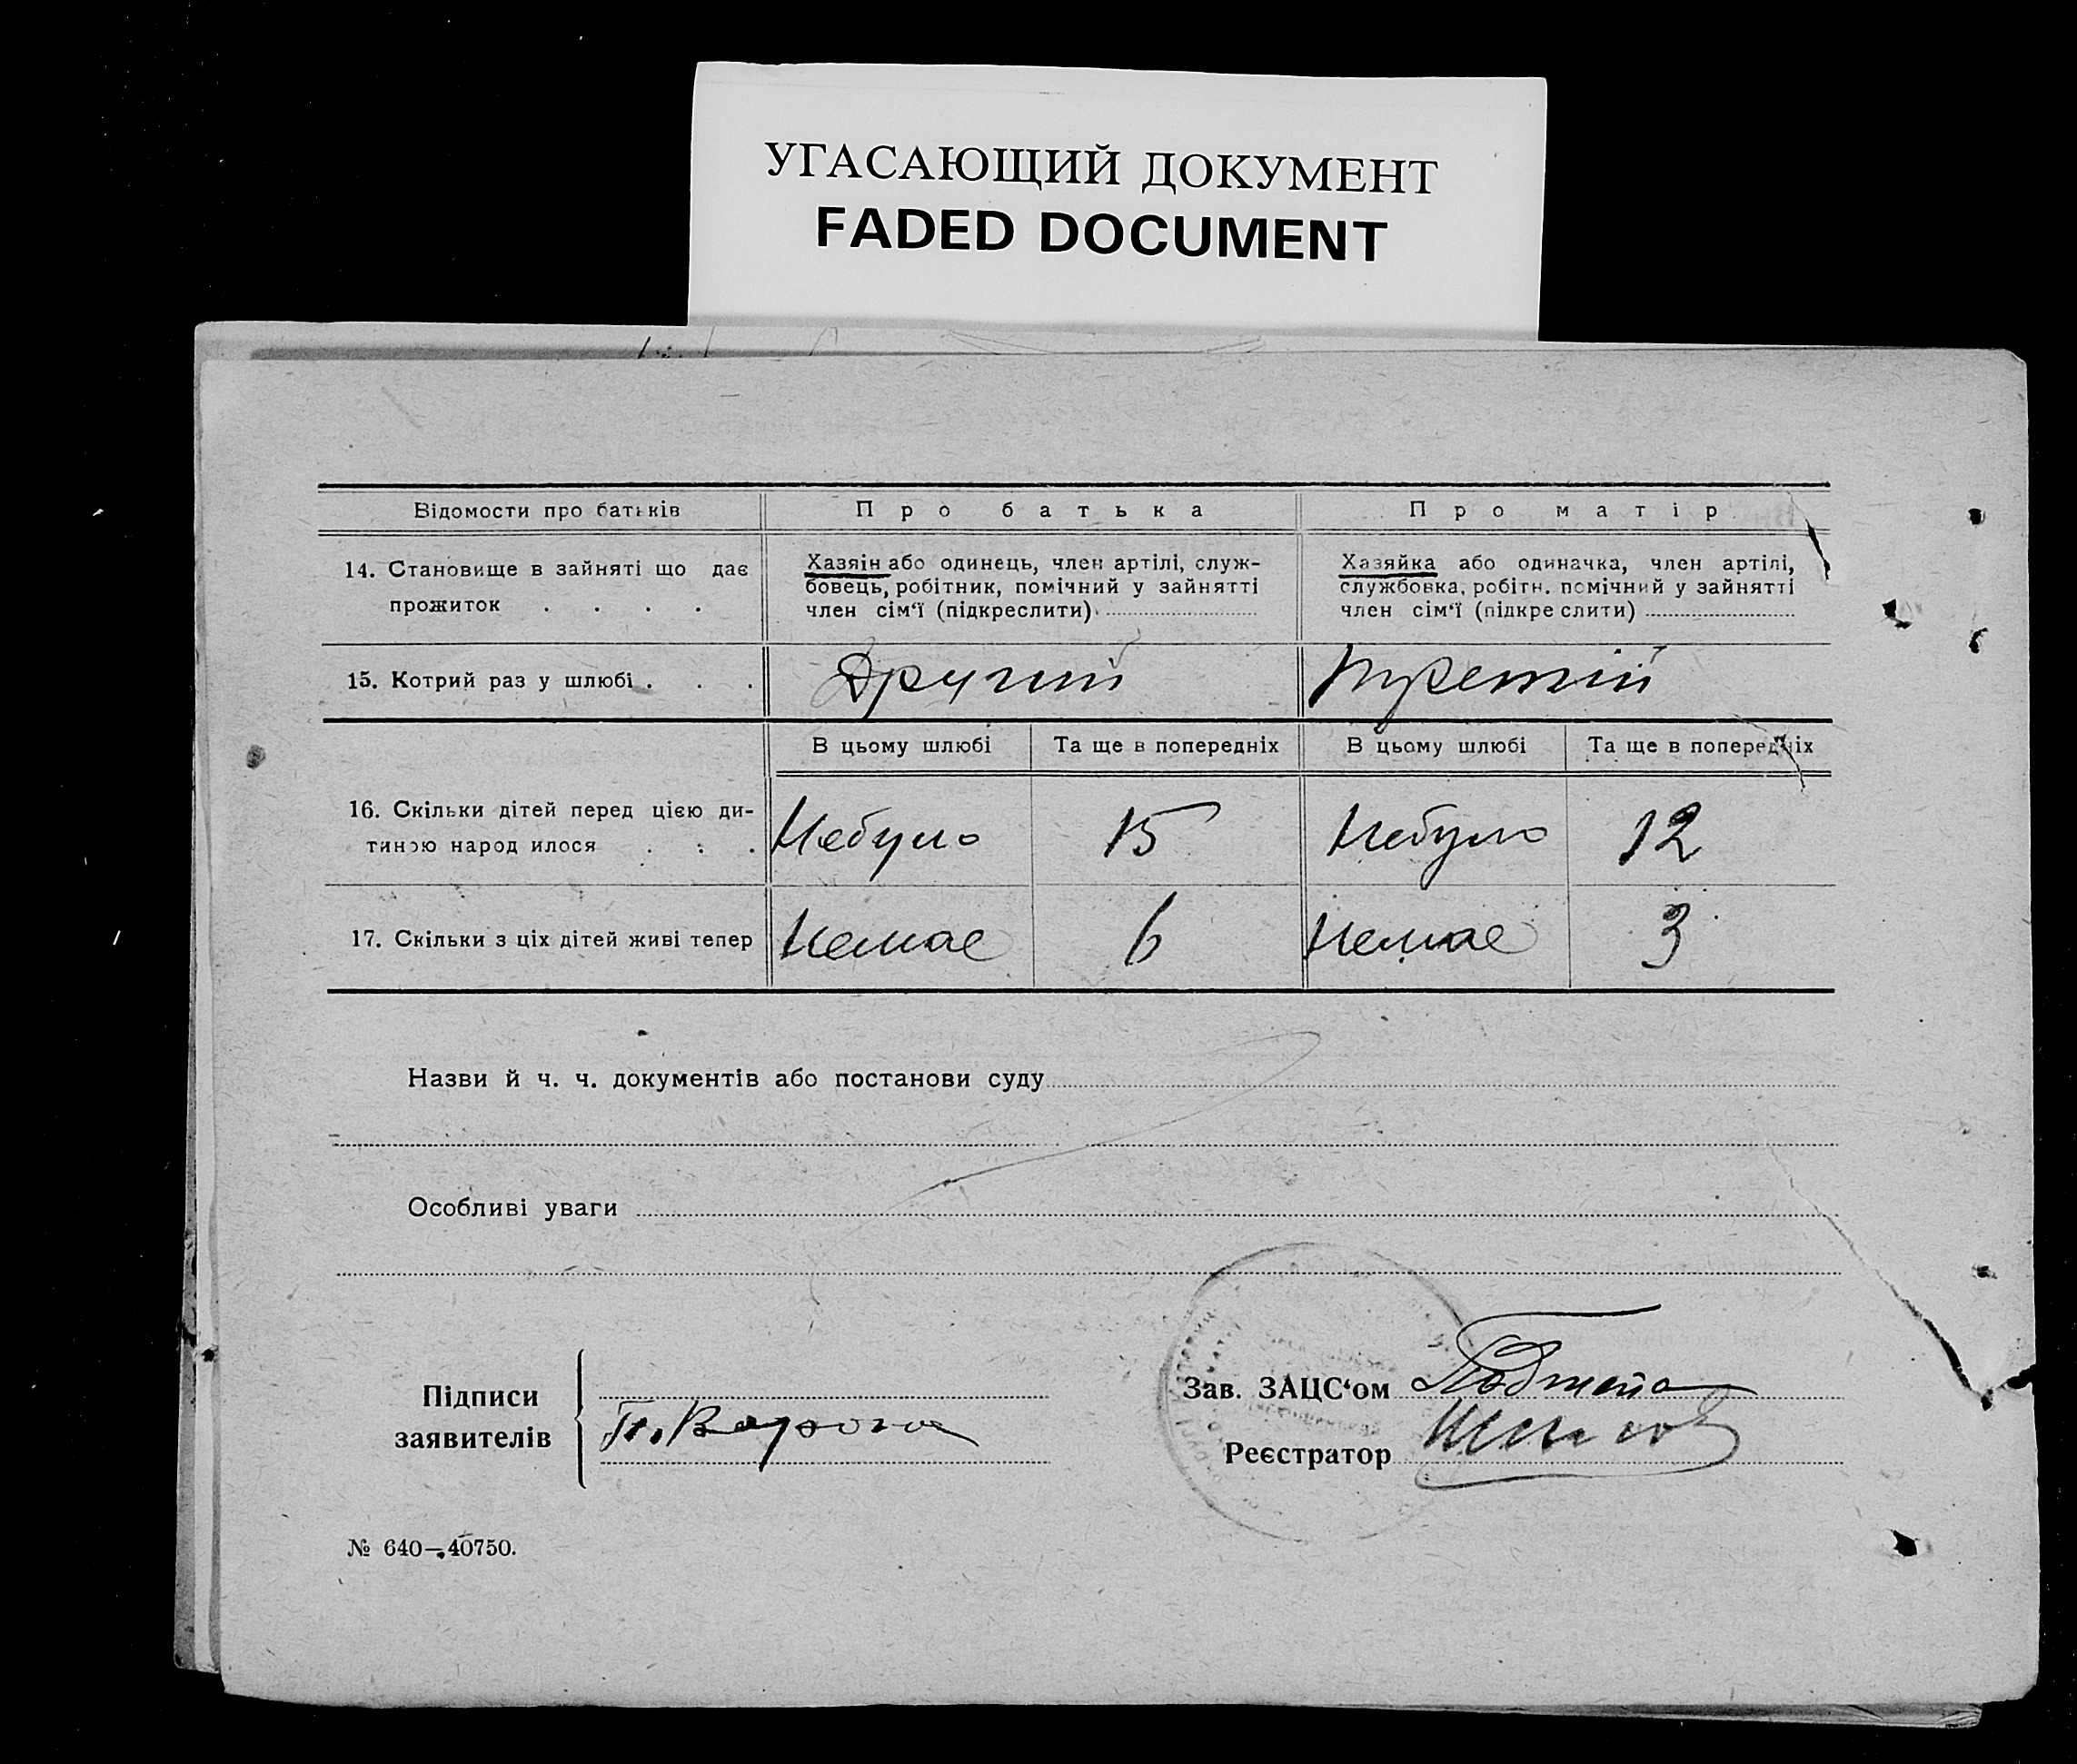 УГАСАЮЩИЙ ДОКУМЕНТ
FADED DOCUMENT
Відомости про батьків
Про батька
Про матір
14. Становище в зайняті що дає
прожиток . . . .
Хазяін або одинець, член артілі, служ-
бовець, робітник, помічний у зайнятті
член сім'ї (підкреслити)
Хазяйка або одиначка, член артілі,
службовка, робітн. помічний у зайнятті
член сім'ї (підкре слити)
15. Котрий раз у шлюбі . . .
Другий
Третій
В цьому шлюбі
Та ще в попередніх
В цьому шлюбі
Та ще в попередніх
16. Скільки дітей перед цією ди-
тиною народ илося . . .
Небуло
15
Небуло
12
17. Скільки з ціх дітей живі тепер
Немае
6
Немае
3
Назви й ч. ч. документів або постанови суду
Особливі уваги
Підписи
заявителів
Зав. ЗАЦС'ом
Реєстратор
№ 640—40750.